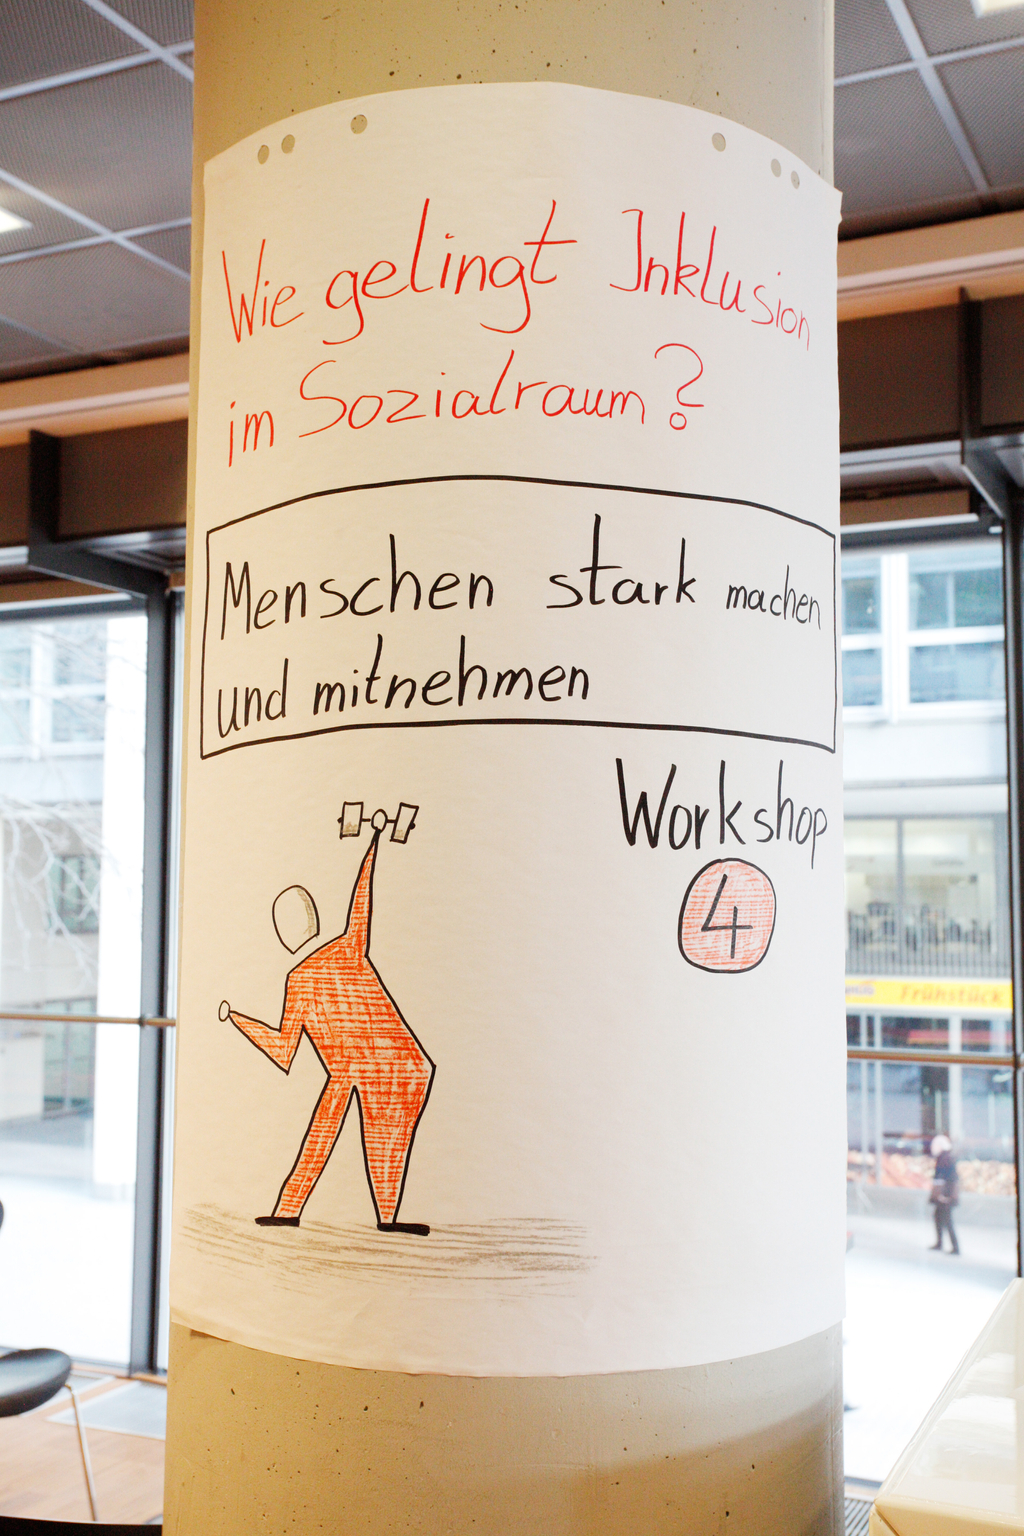 Wie gelingt Inklusion
im Sozialraum?
Menschen stark machen
und mitnehmen
Workshop
4
Frühstück